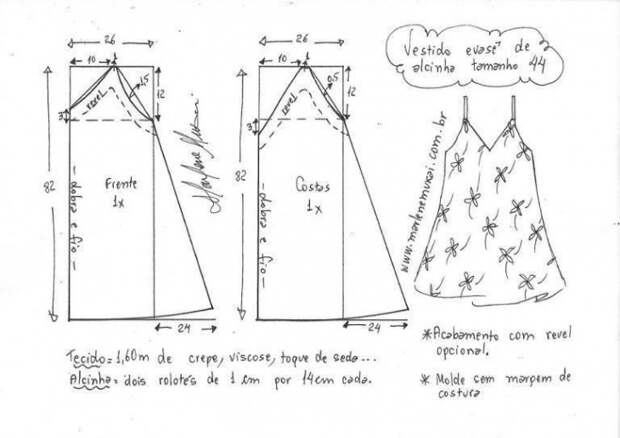 26
26
Vestido evasê de
alcinha tamanho 44
10
1
10
1
1,5
0,5
12
12
revel
revel
3
3
82
82
Frente
1x
Costas
1x
- dobra e fio -
- dobra e fio -
Marlene Mukai
www.marlenemukai.com.br
24
24
Tecido = 1,60m de crepe, viscose, toque de seda...
Alcinha = dois rolotês de 1 cm por 14cm cada.
* Acabamento com revel
opcional.
* Molde sem margem de
costura